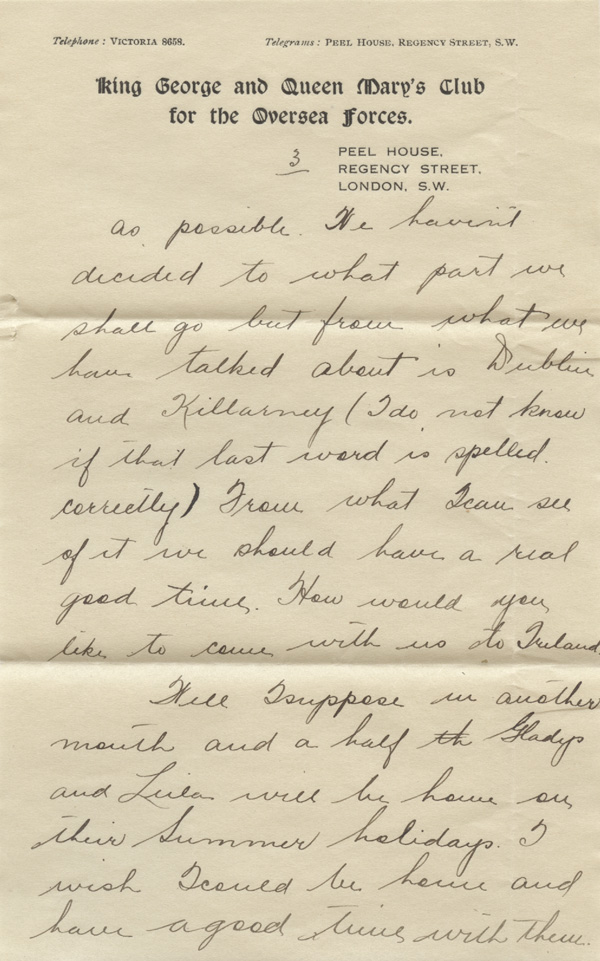 Telephone: VICTORIA 8658. Telegrams: PEEL HOUSE, REGENCY STREET, S.W.
King George and Queen Mary's Club
for the Oversea Forces.
3 PEEL HOUSE,
REGENCY STREET,
LONDON, S.W.
as possible. We haven't
decided to what part we
shall go but from what we
have talked about is Dublin
and Killarney (I do not know
if that last word is spelled
correctly) From what I can see
of it we should have a real
good time. How would you
like to come with us to Ireland.
Well I suppose in another
month and a half th Gladys
and Lula will be home on
their Summer holidays. I
wish I could be home and
have a good time with them.